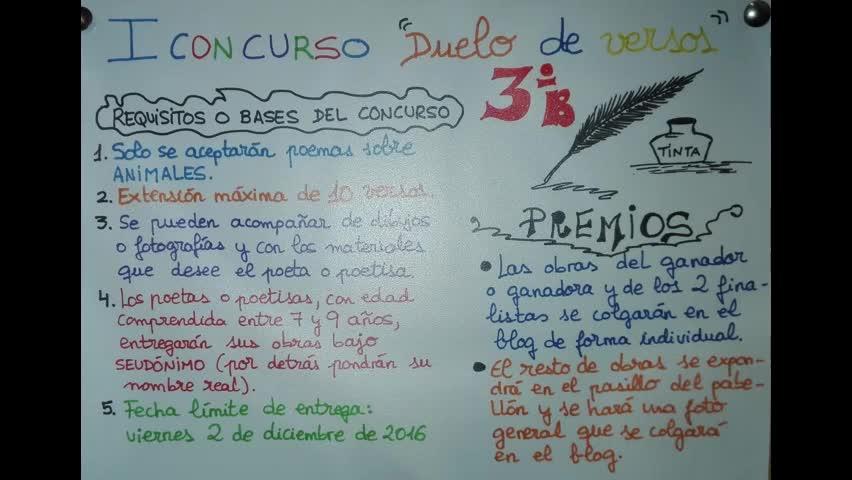 I CONCURSO "Duelo de versos"
3º B
REQUISITOS O BASES DEL CONCURSO
1. Solo se aceptarán poemas sobre
ANIMALES.
2. Extensión máxima de 10 versos.
3. Se pueden acompañar de dibujos
o fotografías y con los materiales
que desee el poeta o poetisa.
4. Los poetas o poetisas, con edad
comprendida entre 7 y 9 años,
entregarán sus obras bajo
SEUDÓNIMO (por detrás pondrán su
nombre real).
5. Fecha límite de entrega:
viernes 2 de diciembre de 2016
TINTA
PREMIOS
• Las obras del ganador
o ganadora y de los 2 fina-
listas se colgarán en el
blog de forma individual.
• El resto de obras se expon-
drá en el pasillo del pabe-
llón y se hará una foto
general que se colgará
en el blog.